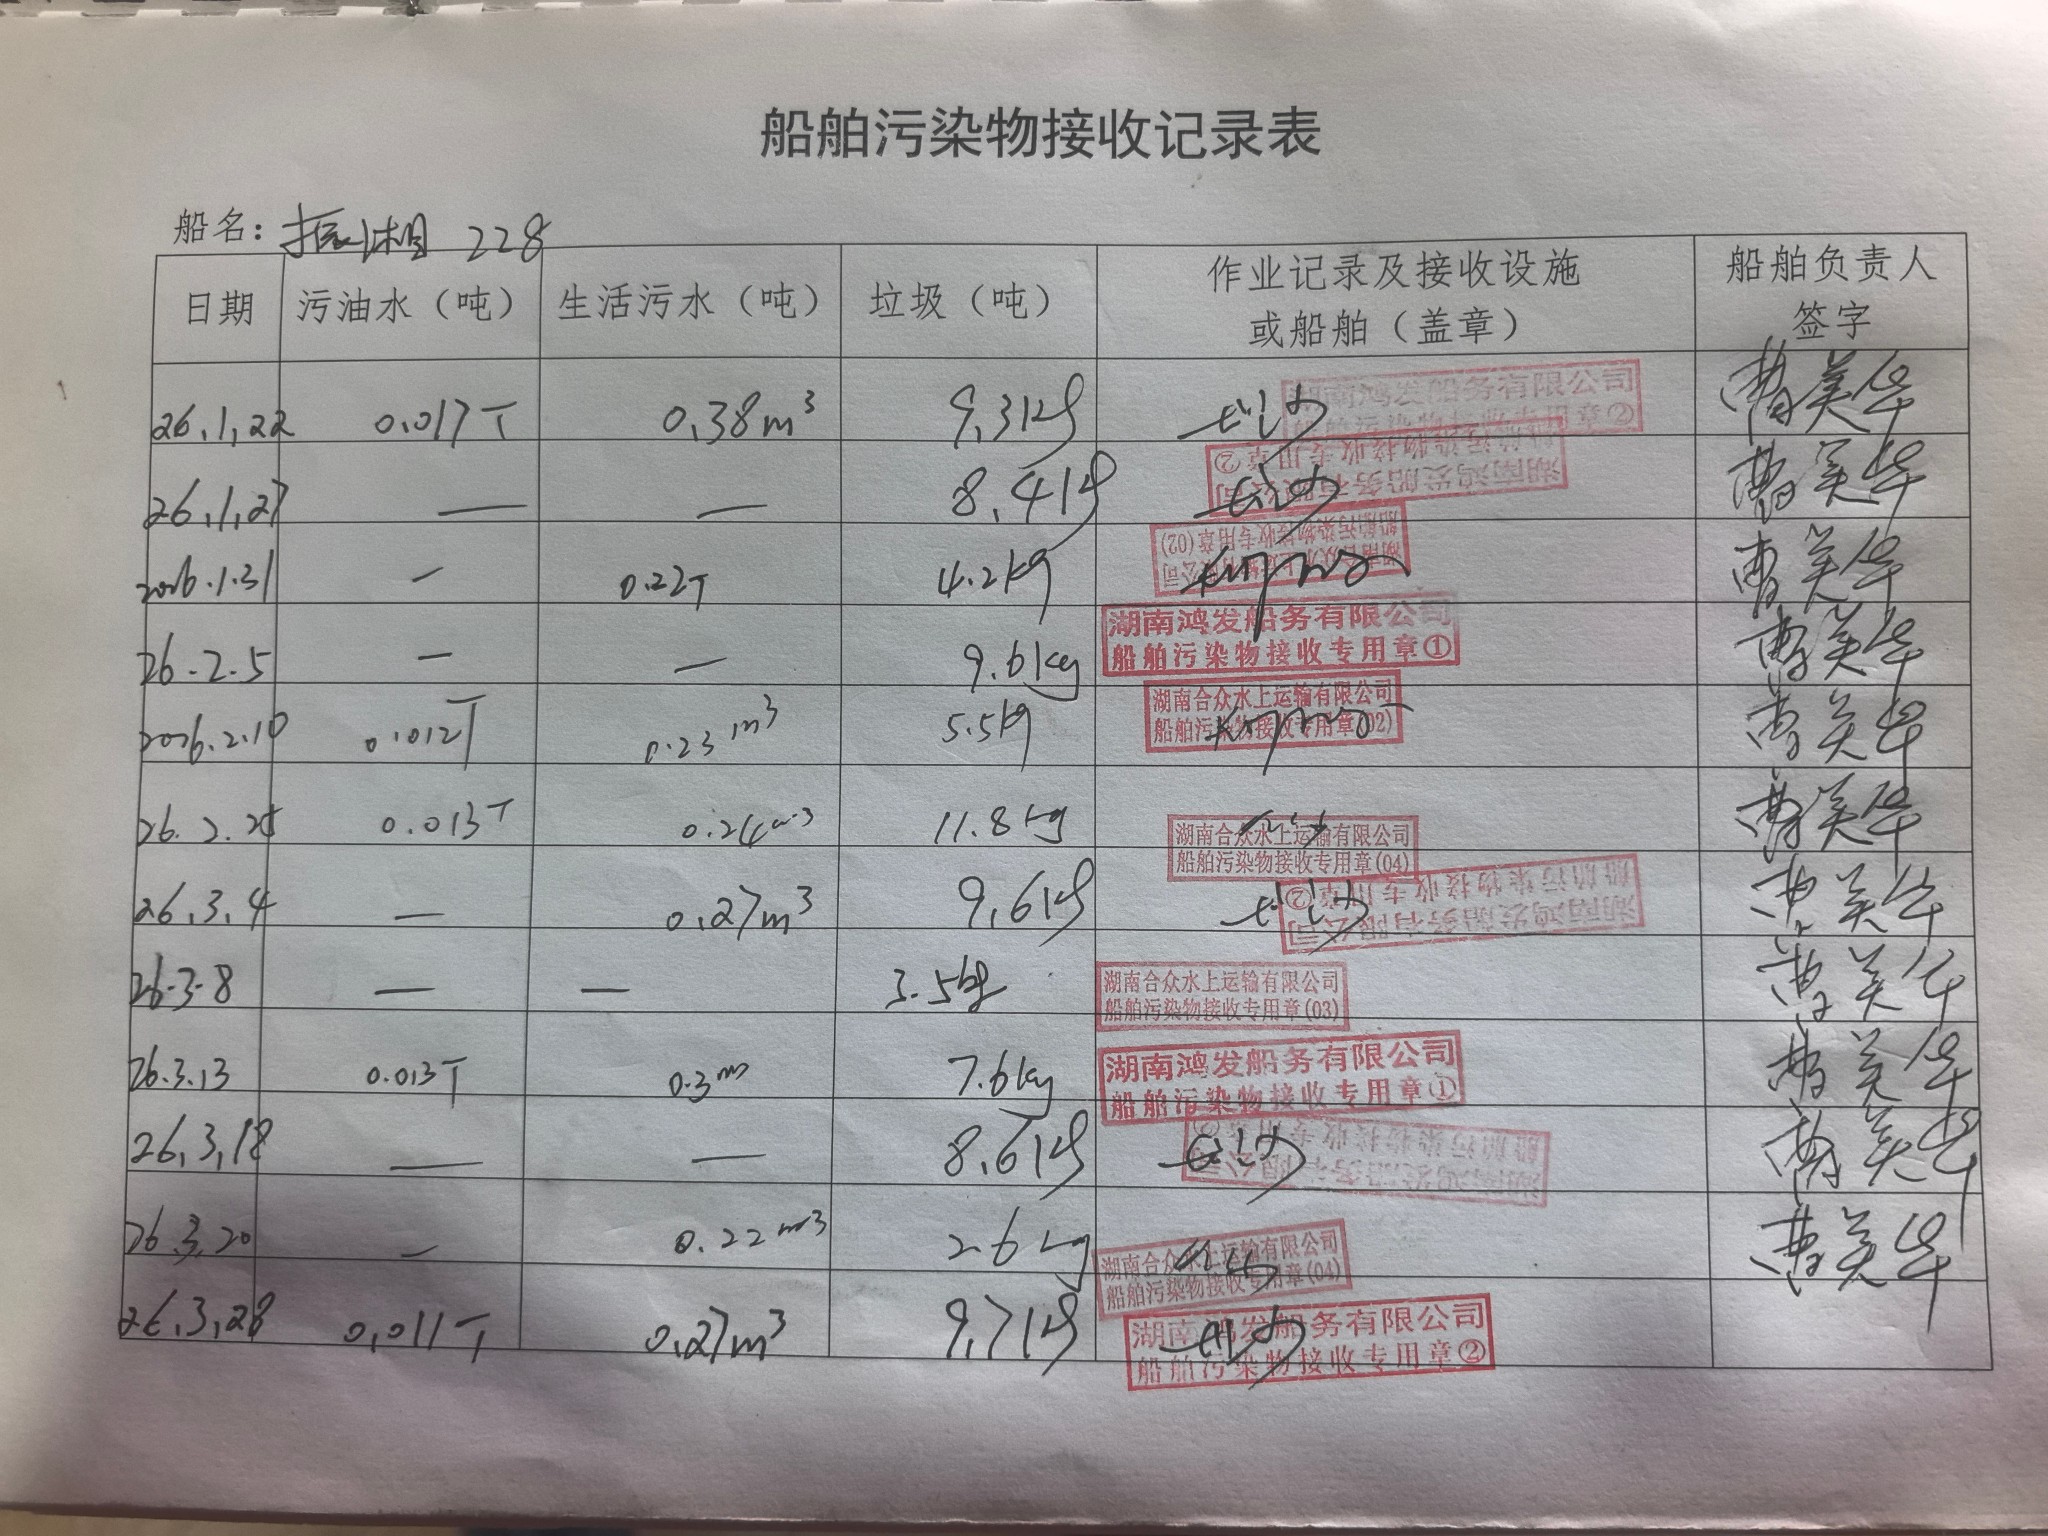 船舶污染物接收记录表
船名：振湘 228
日期 污油水（吨） 生活污水（吨） 垃圾（吨） 作业记录及接收设施 船舶负责人
或船舶（盖章） 签字
26.1.22 0.017T 0.38m³ 9.3kg 长沙 湖南鸿发船务有限公司 曹美华
26.1.27 — — 8.4kg 长沙 湖南鸿发船务有限公司 船舶污染物接收专用章② 曹美华
2026.1.31 — 0.22T 4.2kg 船舶污染物接收专用章(02) 曹美华
26.2.5 — — 9.6kg 湖南鸿发船务有限公司 船舶污染物接收专用章① 曹美华
2026.2.10 0.012T 0.23m³ 5.5kg 湖南合众水上运输有限公司 船舶污染物接收专用章(02) 曹美华
26.2.25 0.013T 0.24m³ 11.8kg 湖南合众水上运输有限公司 船舶污染物接收专用章(04) 曹美华
26.3.4 — 0.27m³ 9.6kg 长沙 湖南鸿发船务有限公司 船舶污染物接收专用章② 曹美华
26.3.8 — — 3.5kg 湖南合众水上运输有限公司 船舶污染物接收专用章(03) 曹美华
26.3.13 0.013T 0.3m³ 7.6kg 湖南鸿发船务有限公司 船舶污染物接收专用章① 曹美华
26.3.18 — — 8.6kg 长沙 曹美华
26.3.20 — 0.22m³ 2.6kg 湖南合众水上运输有限公司 船舶污染物接收专用章(04) 曹美华
26.3.28 0.011T 0.27m³ 9.7kg 长沙 湖南鸿发船务有限公司 船舶污染物接收专用章②